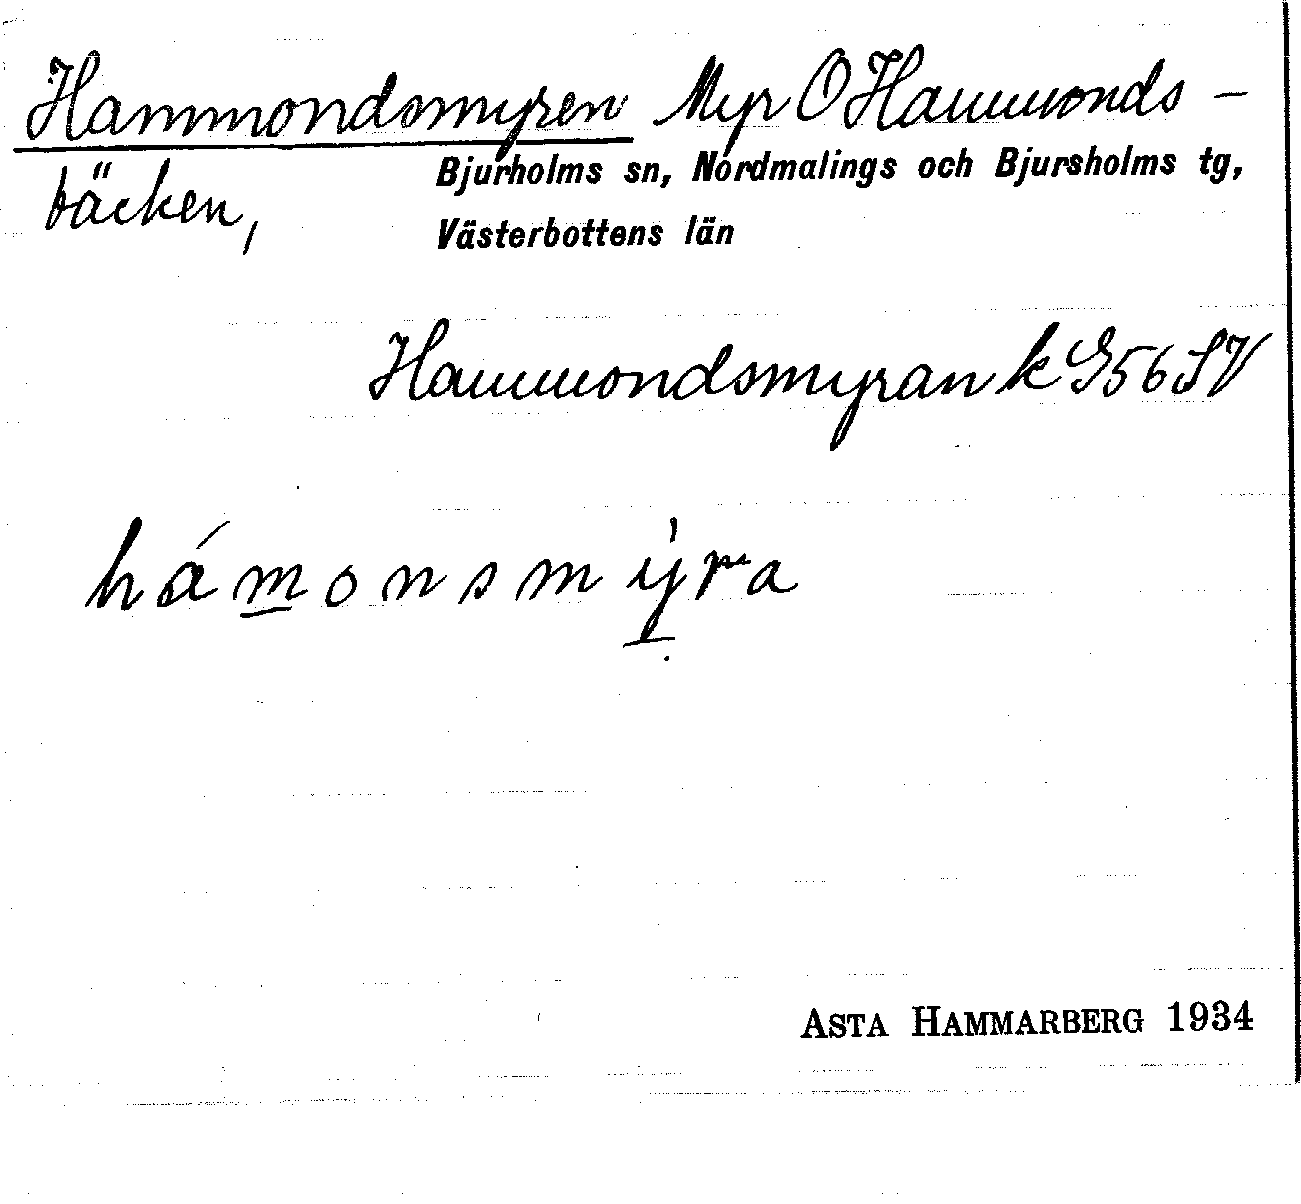 Hammondsmyren Myr O Hammonds-
bäcken, Bjurholms sn, Nordmalings och Bjursholms tg,
Västerbottens län
Hammondsmyran k G56SV
hámonsmýra
ASTA HAMMARBERG 1934